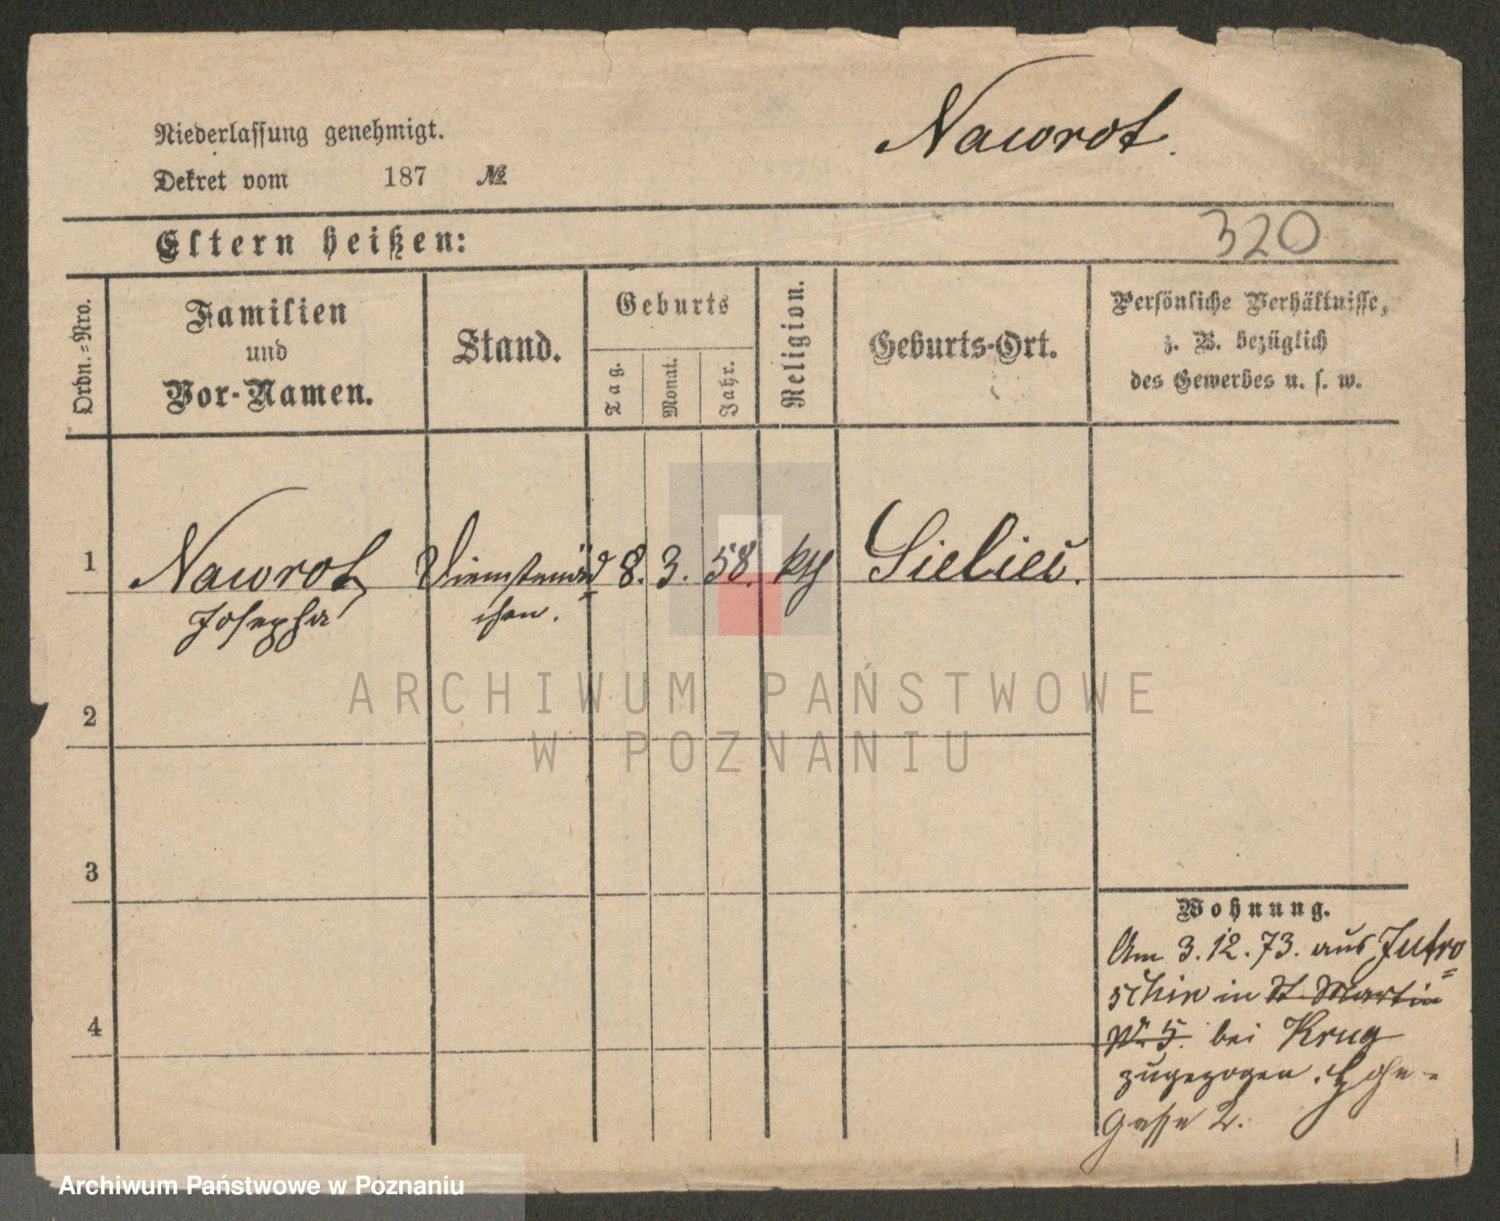 Nawrot.
Niederlassung genehmigt.
Dekret vom 187 №
Eltern heißen:
320
Ordn.-Nro.
Familien
und
Vor-Namen.
Stand.
Geburts
Tag.
Monat.
Jahr.
Religion.
Geburts-Ort.
Persönliche Verhältnisse,
z. B. bezüglich
des Gewerbes u. s. w.
1 Nawrot, 8. 3. 58. kth Sielież.
Josepha
2
3
4
Wohnung.
Am 3. 12. 73. aus Jutro=
schin in St. Martin
Nr. 5. bei Krug
zugezogen. Hohe-
Gasse 2.
ARCHIWUM PAŃSTWOWE
W POZNANIU
Archiwum Państwowe w Poznaniu